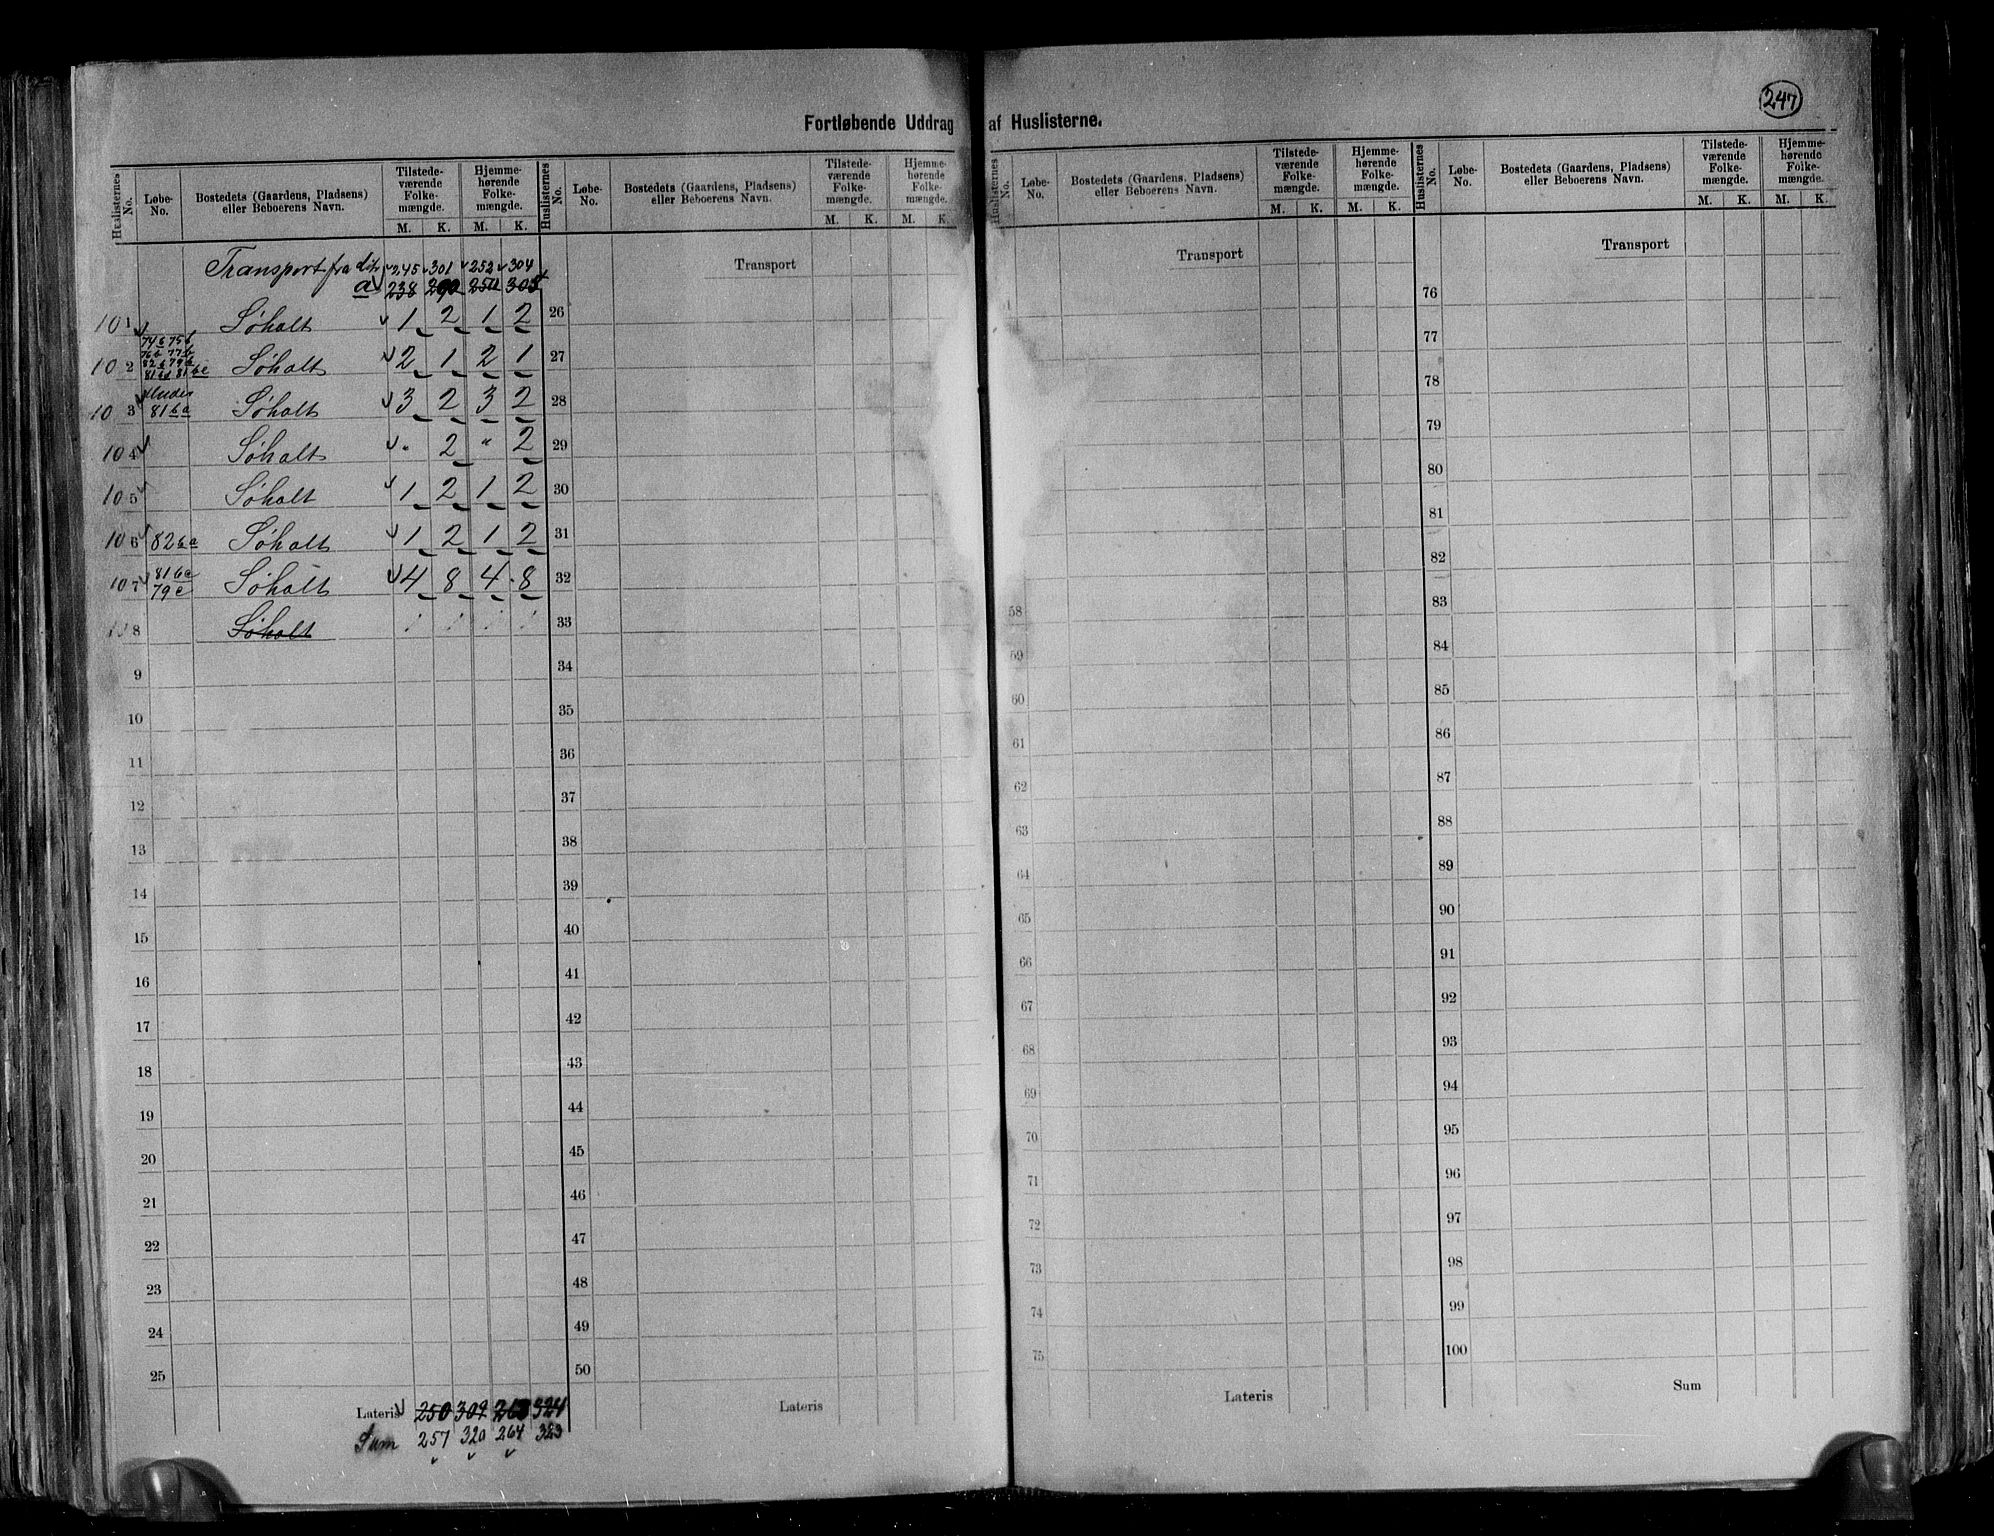 247
Fortløbende Uddrag af Huslisternes.
Huslisternes No. Løbe-No. Bostedets (Gaardens, Pladsens) eller Beboerens Navn. Tilstede-værende Folke-mængde. M. K. Hjemme-hørende Folke-mængde. M. K.
Huslisternes No. Løbe-No. Bostedets (Gaardens, Pladsens) eller Beboerens Navn. Tilstede-værende Folke-mængde. M. K. Hjemme-hørende Folke-mængde. M. K.
Huslisternes No. Løbe-No. Bostedets (Gaardens, Pladsens) eller Beboerens Navn. Tilstede-værende Folke-mængde. M. K. Hjemme-hørende Folke-mængde. M. K.
Huslisternes No. Løbe-No. Bostedets (Gaardens, Pladsens) eller Beboerens Navn. Tilstede-værende Folke-mængde. M. K. Hjemme-hørende Folke-mængde. M. K.
Transport fra litr 245 301 252 304
a 238 290
101 Søholt 1 2 1 2
74b 75b
76b 77b
82b 79b
102 Søholt 2 1 2 1
103 81ba Søholt 3 2 3 2
104 Søholt " 2 " 2
105 Søholt 1 2 1 2
106 82ba Søholt 1 2 1 2
107 79c Søholt 4 8 4 8
8 Søholt
9
10
11
12
13
14
15
16
17
18
19
20
21
22
23
24
25
Lateris 250 309 263 324
Sum 257 320 264 323
Transport
26
27
28
29
30
31
32
33
34
35
36
37
38
39
40
41
42
43
44
45
46
47
48
49
50
Lateris
Transport
58
59
60
61
62
63
64
65
66
67
68
69
70
71
72
73
74
75
Lateris
Transport
76
77
78
79
80
81
82
83
84
85
86
87
88
89
90
91
92
93
94
95
96
97
98
99
100
Sum